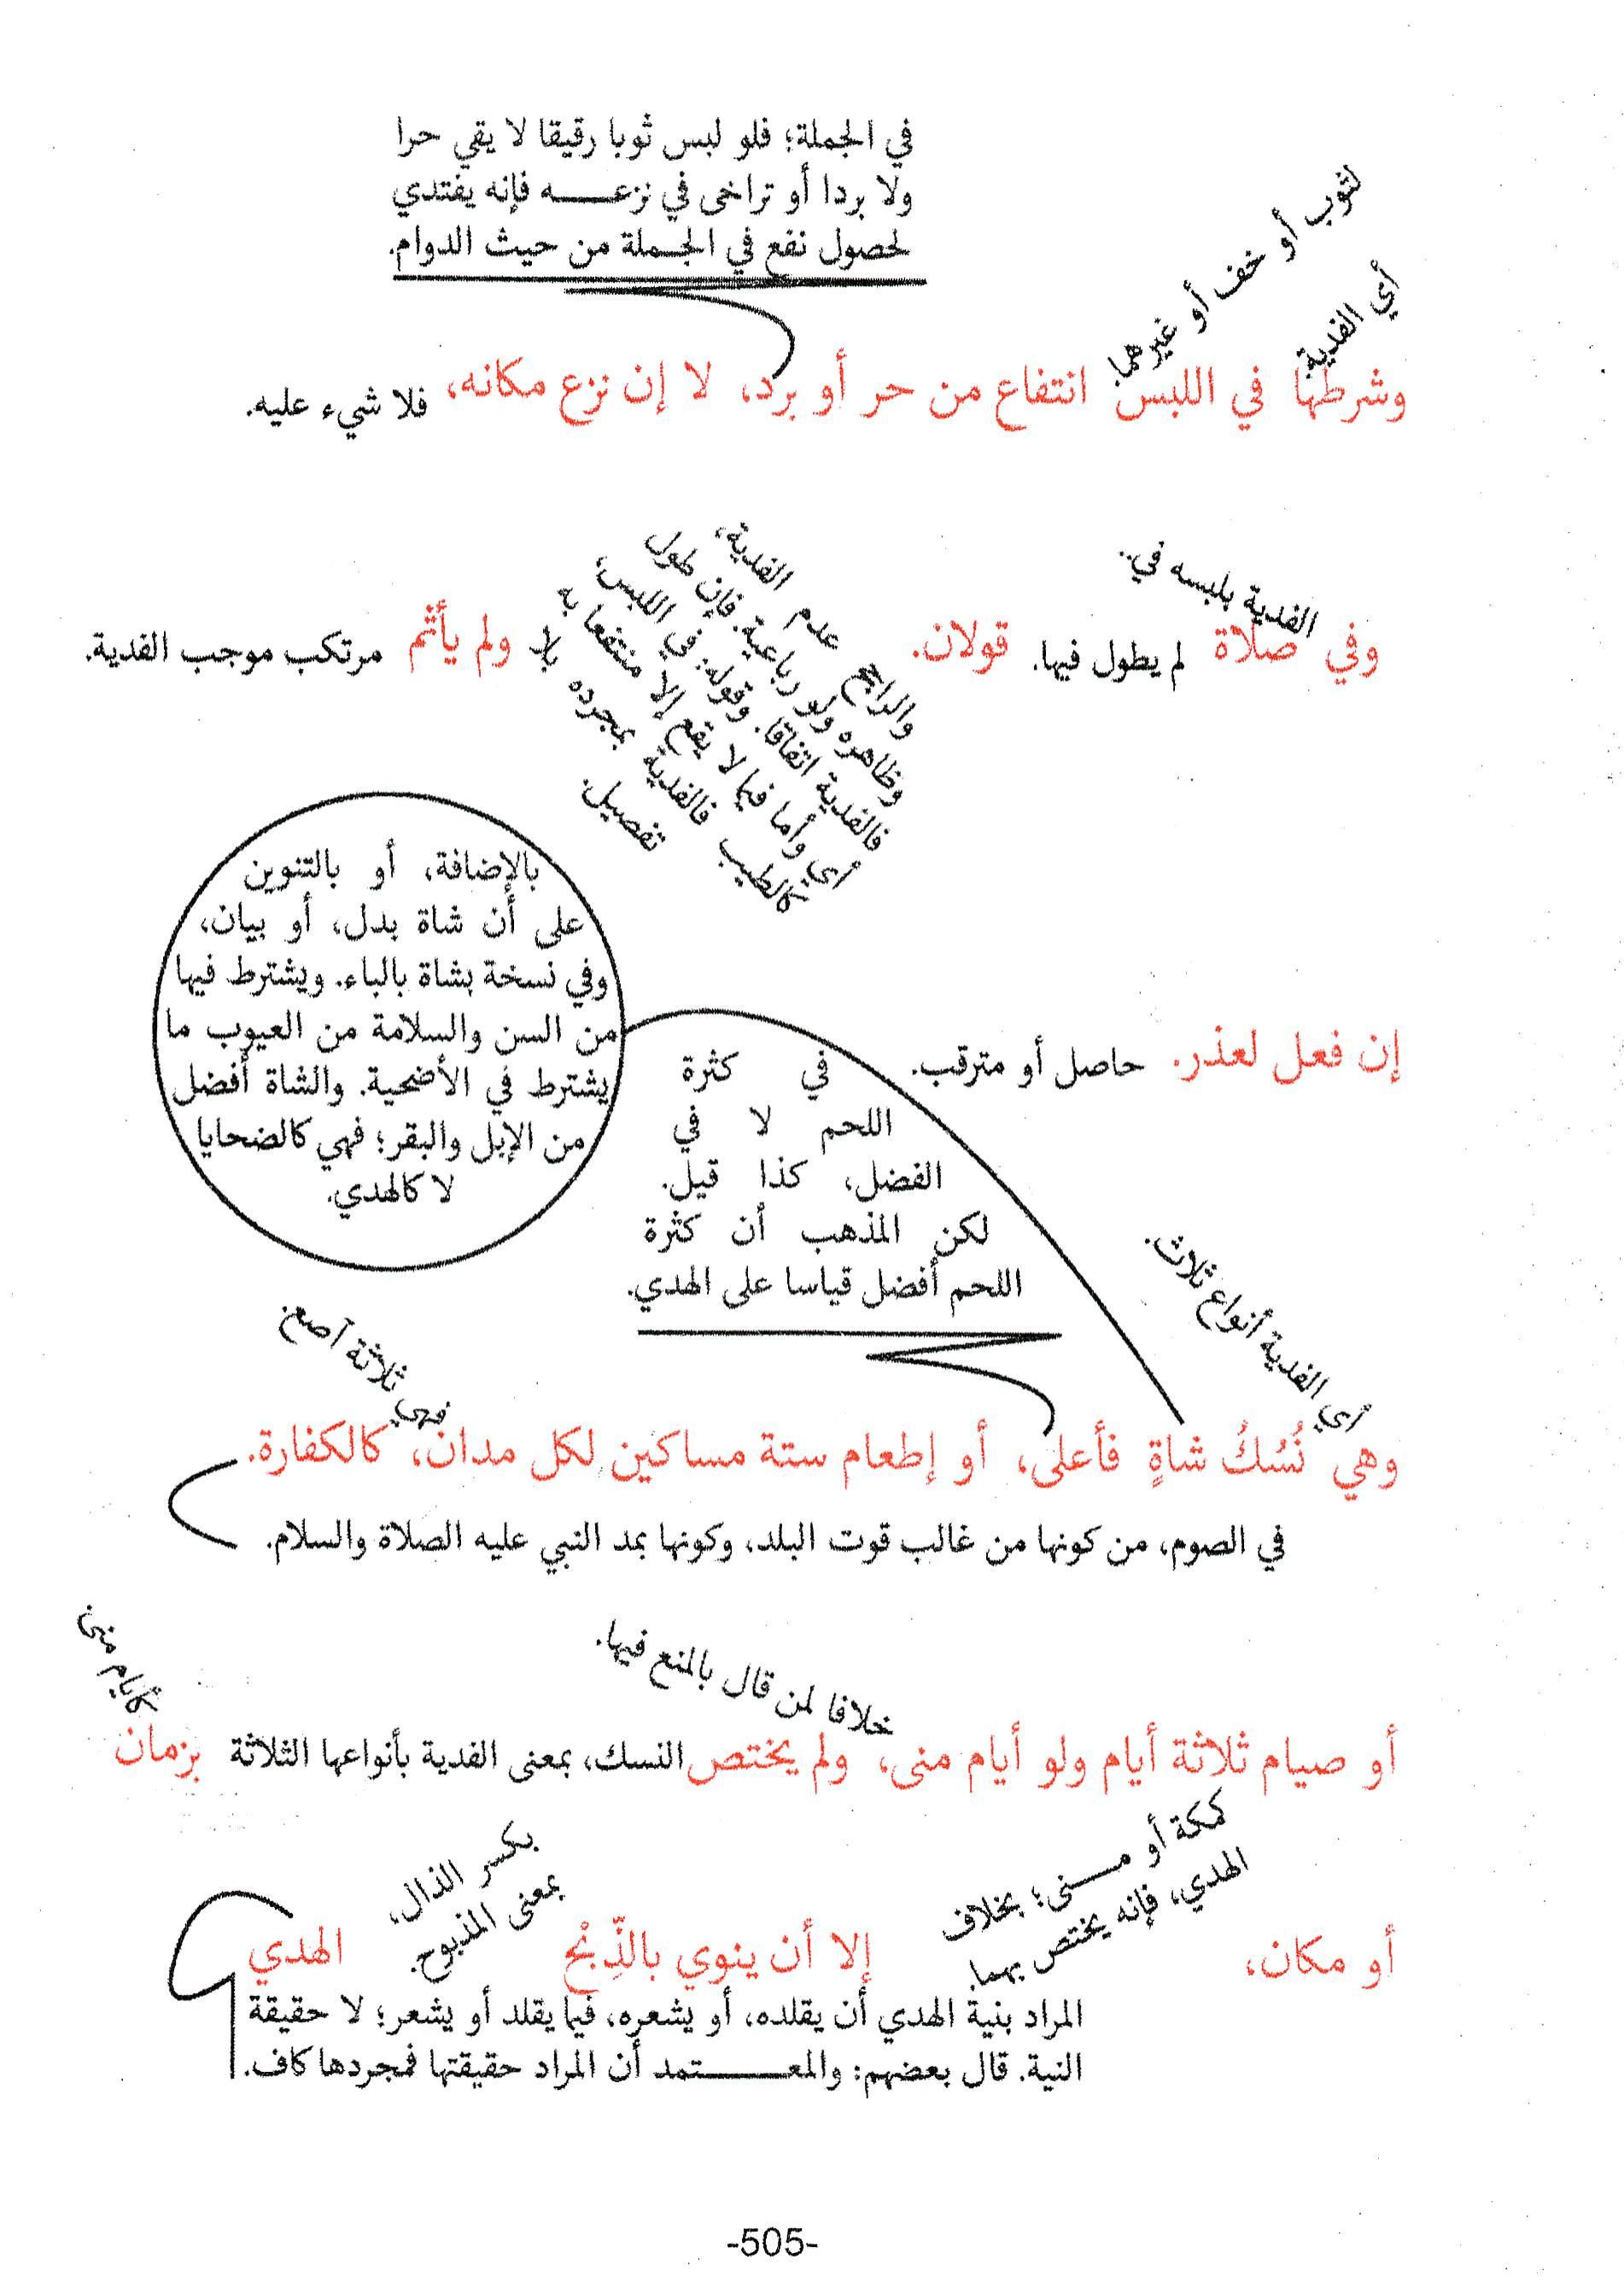 في الجملة؛ فلو لبس ثوبا رقيقا لا يقي حرا
ولا بردا أو تراخى في نزعـــه فإنه يفتدي
لحصول نفع في الجملة من حيث الدوام.
لثوب أو خف أو غيرهما.
أي الفدية.
وشرطها في اللبس انتفاع من حر أو برد، لا إن نزع مكانه، فلا شيء عليه.
الفدية بلبسه في..
وفي صلاة لم يطول فيها. قولان. ولم يأثم مرتكب موجب الفدية.
والراجح عدم الفدية،
وظاهره ولو رباعية. فإن طول
فالفدية اتفاقا. وقوله: في اللبس،
أي وأما فيما لا يقع إلا منتفعا به
كالطيب فالفدية بمجرده بلا
تفصيل.
بالإضافة، أو بالتنوين
على أن شاة بدل، أو بيان،
وفي نسخة بشاة بالباء. ويشترط فيها
من السن والسلامة من العيوب ما
يشترط في الأضحية. والشاة أفضل
من الإبل والبقر؛ فهي كالضحايا
لا كالهدي.
إن فعل لعذر. حاصل أو مترقب.
في كثرة
اللحم لا في
الفضل، كذا قيل.
لكن المذهب أن كثرة
اللحم أفضل قياسا على الهدي.
أي الفدية أنواع ثلاث.
فهي ثلاثة آصع.
وهي نُسُكُ شاةٍ فأعلى، أو إطعام ستة مساكين لكل مدان، كالكفارة.
في الصوم، من كونها من غالب قوت البلد، وكونها بمد النبي عليه الصلاة والسلام.
خلافا لمن قال بالمنع فيها.
كأيام منى.
أو صيام ثلاثة أيام ولو أيام منى، ولم يختص النسك، بمعنى الفدية بأنواعها الثلاثة بزمان
كمكة أو مـــنى؛ بخلاف
الهدي، فإنه يختص بهما.
بكسر الذال،
بمعنى المذبوح.
أو مكان، إلا أن ينوي بالذِّبْح الهدي
المراد بنية الهدي أن يقلده، أو يشعره، فيما يقلد أو يشعر؛ لا حقيقة
النية. قال بعضهم: والمعـــــتمد أن المراد حقيقتها فمجردها كاف.
-505-